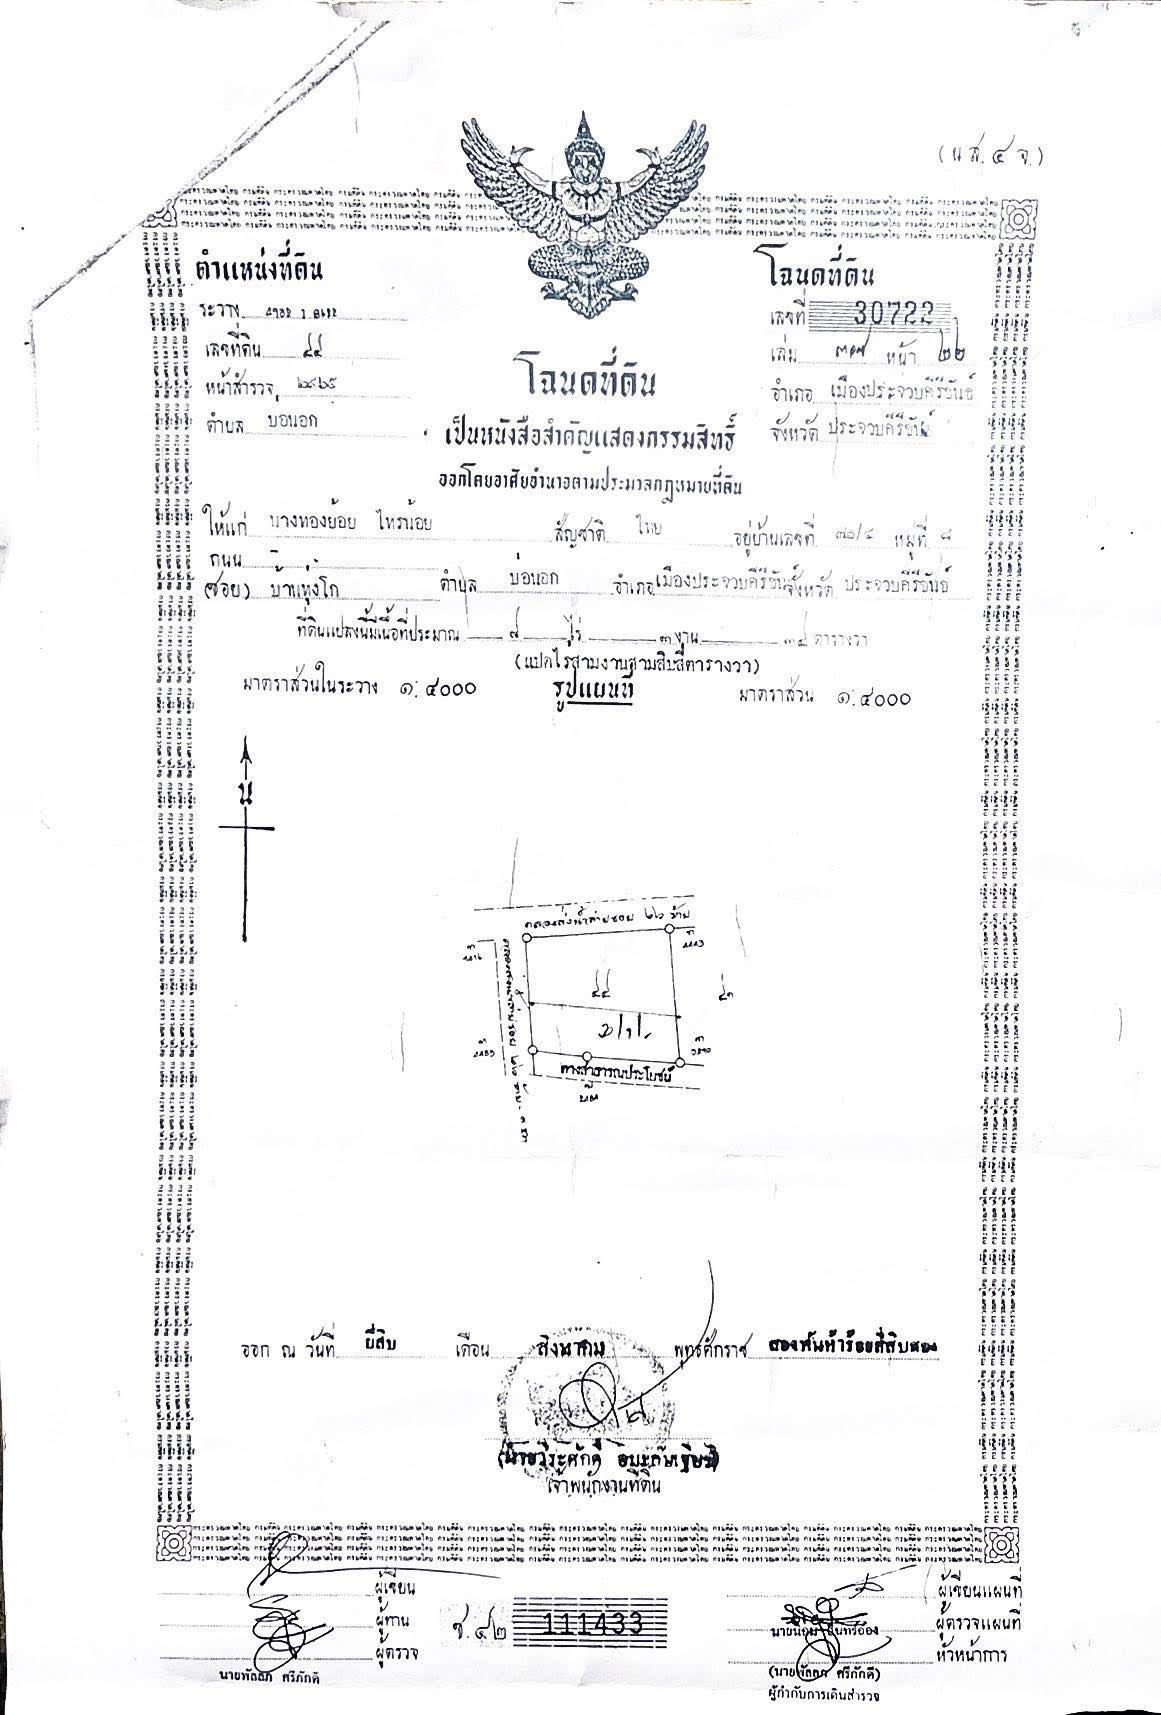 (น.ส. ๔ จ.)
ตำแหน่งที่ดิน
ระวาง
เลขที่ดิน ๔๔
หน้าสำรวจ ๒๙๖๕
ตำบล บ่อนอก
โฉนดที่ดิน
เลขที่ 30722
เล่ม ๓๐๗ หน้า ๒๒
อำเภอ เมืองประจวบคีรีขันธ์
จังหวัด ประจวบคีรีขันธ์
โฉนดที่ดิน
เป็นหนังสือสำคัญแสดงกรรมสิทธิ์
ออกโดยอาศัยอำนาจตามประมวลกฎหมายที่ดิน
ให้แก่ นางทองย้อย ไทรน้อย สัญชาติ ไทย อยู่บ้านเลขที่ ๗๐/๔ หมู่ที่ ๘
ถนน -
(ซอย) บ้านทุ่งโก ตำบล บ่อนอก อำเภอ เมืองประจวบคีรีขันธ์ จังหวัด ประจวบคีรีขันธ์
ที่ดินแปลงนี้มีเนื้อที่ประมาณ ๘ ไร่ ๓ งาน ๓๔ ตารางวา
(แปดไร่สามงานสามสิบสี่ตารางวา)
มาตราส่วนในระวาง ๑:๔๐๐๐ รูปแผนที่ มาตราส่วน ๑:๔๐๐๐
น
คลองส่งน้ำสายซอย ๒๖ ซ้าย
๔๔
ทางสาธารณประโยชน์
ออก ณ วันที่ ยี่สิบ เดือน สิงหาคม พุทธศักราช สองพันห้าร้อยสี่สิบสอง
(นายวีระศักดิ์
เจ้าพนักงานที่ดิน
ผู้เขียน
ผู้ทาน
ผู้ตรวจ
นายพัลลภ ศรีภักดี
ช.๔๒ 111433
ผู้เขียนแผนที่
ผู้ตรวจแผนที่
หัวหน้าการ
(นายพัลลภ ศรีภักดี)
ผู้กำกับการเดินสำรวจ